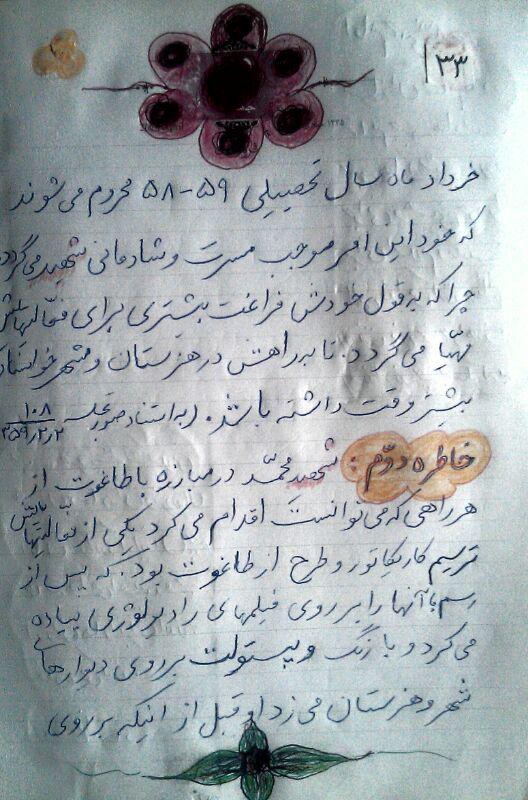 ۳۳
خرداد ماه سال تحصیلی ۵۹-۵۸ محروم می‌شوند
که خود این امر موجب مسرت و شادمانی شهید می‌گردد
چرا که به قول خودش فراغت بیشتری برای فعّالیتهایش
مهّیا می‌گردد. تا به راهش در هنرستان و شهر خوانسار
بیشتر وقت داشته باشد. (به استناد صورتجلسه ۱۰۸
خاطره دوّم: شهید محمّد در مبارزه با طاغوت از
هر راهی که می‌توانست اقدام می‌کرد یکی از فعّالیتهایش
ترسیم کاریکاتور و طرح از طاغوت بود. که پس از
رسم آنها را بر روی فیلمهای رادیولوژی پیاده
می‌کرد و با رنگ و پیستولت بر روی دیوارهای
شهر و هنرستان می‌زد او قبل از اینکه بر روی